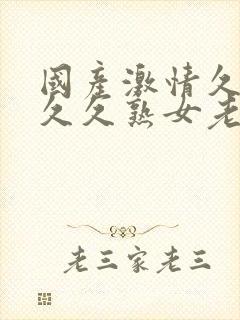 國產激情久
久久熟女老
老三家老三